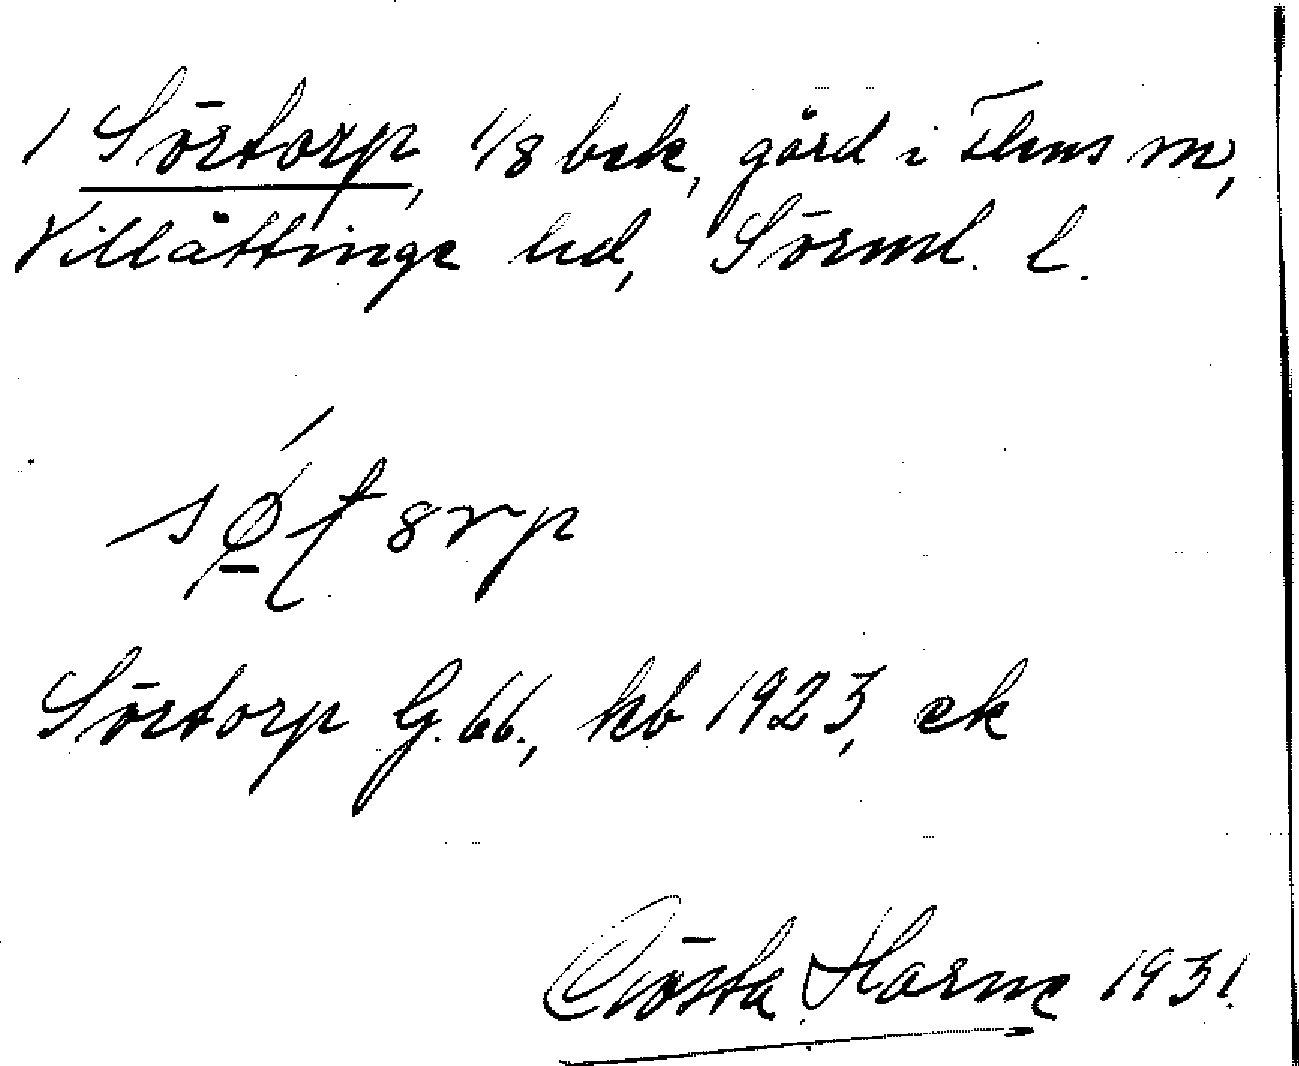 1 Sörtorp, 1/8 bek, gård i Flens sn,
Villåttinge hd, Sörml. l.
Sörtorp G.66., kb 1923, ek
Gösta Harne 1931